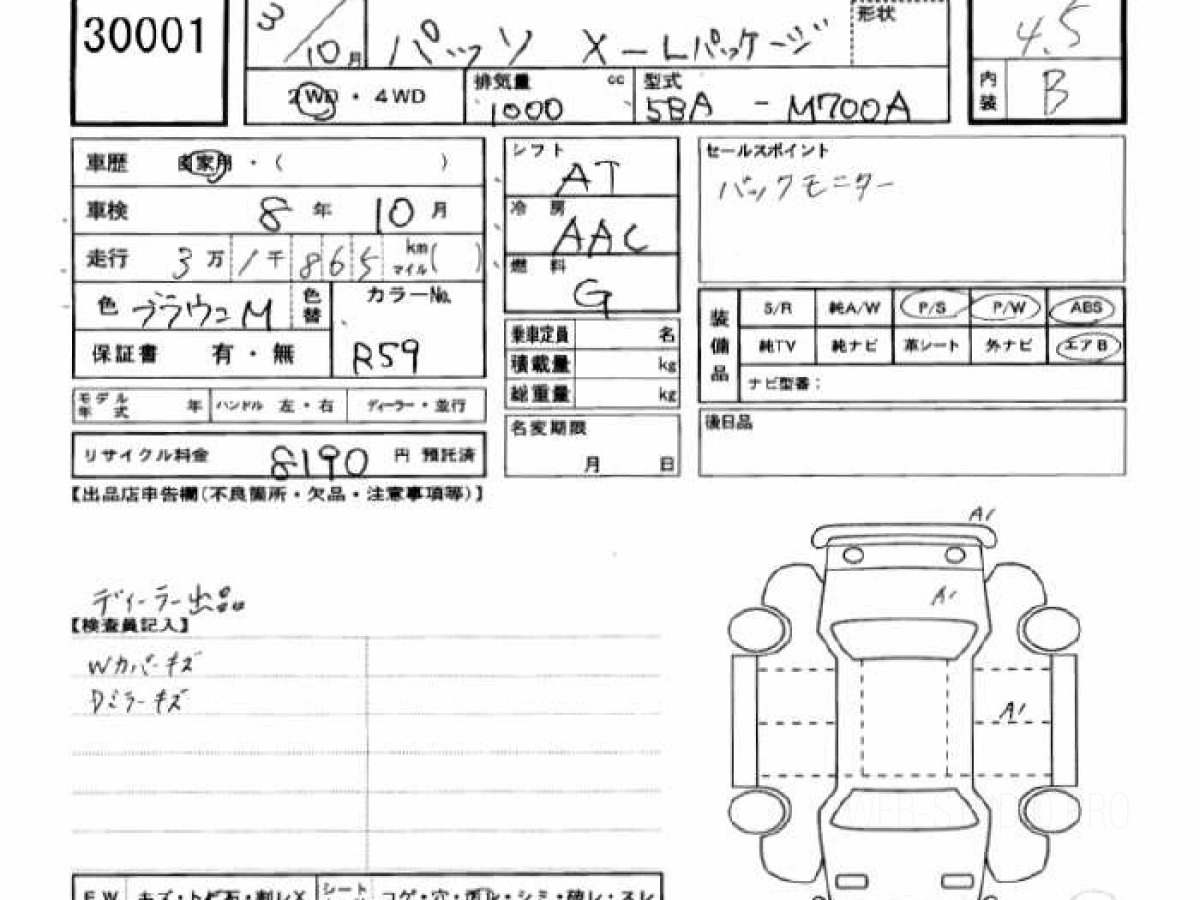 30001
3/10月
パッソ X-Lパッケージ
形状
4.5
2WD・4WD
排気量 cc
1000
型式
5BA - M700A
内装 B
車歴 自家用・( )
車検 8年 10月
走行 3万1千865 km マイル( )
色 ブラウンM
色替
カラーNo.
R59
保証書 有・無
シフト
AT
冷房
AAC
燃料
G
セールスポイント
バックモニター
装備品
S/R 純A/W P/S P/W ABS
純TV 純ナビ 革シート 外ナビ エアB
ナビ型番:
乗車定員 名
積載量 kg
総重量 kg
モデル年式 年 ハンドル 左・右 ディーラー・並行
リサイクル料金 8190円 預託済
名変期限
月 日
後日品
【出品店申告欄(不良箇所・欠品・注意事項等)】
ディーラー出品
【検査員記入】
Wカバーキズ
Dミラーキズ
A1
A1
A1
シート
コゲ・穴・